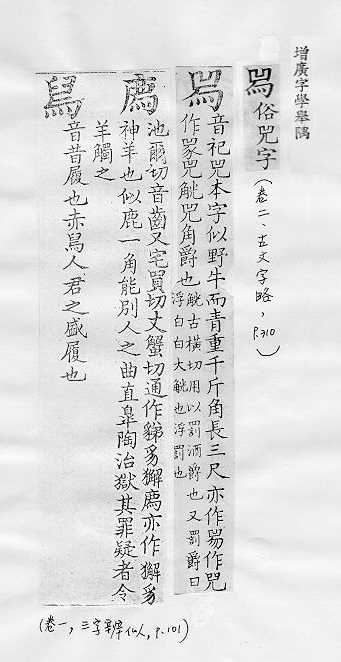 增廣字學舉隅
俗兕字 (卷二、古文字略, P.310)
音祀兕本字似野牛而青重千斤角長三尺亦作作兕
作兕觥兕角爵也
觥古橫切用以罰酒爵也又罰爵曰
浮白白大觥也浮罰也
廌
池爾切音齒又宅買切丈蟹切通作豸獬廌亦作獬豸
神羊也似鹿一角能別人之曲直皋陶治獄其罪疑者令
羊觸之
舄
音昔履也赤舄人君之盛履也
(卷一, 三字辨似, P.101)